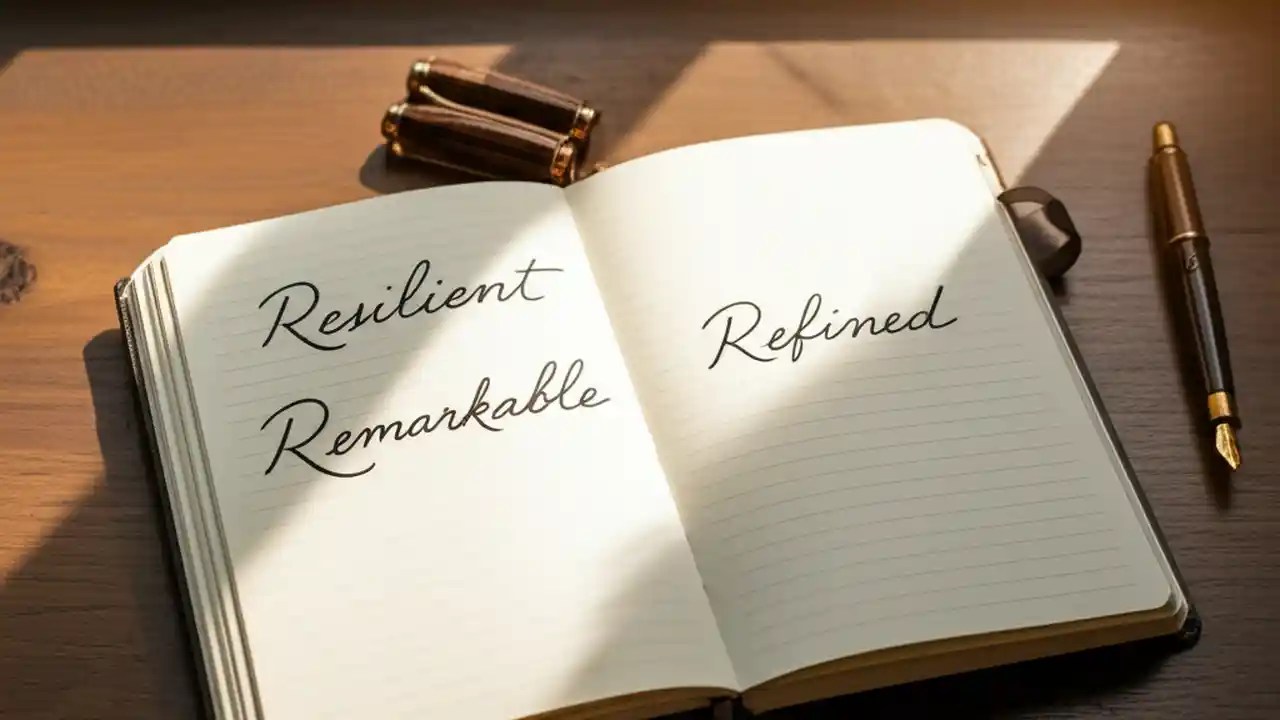 Resilient
Remarkable
Refined